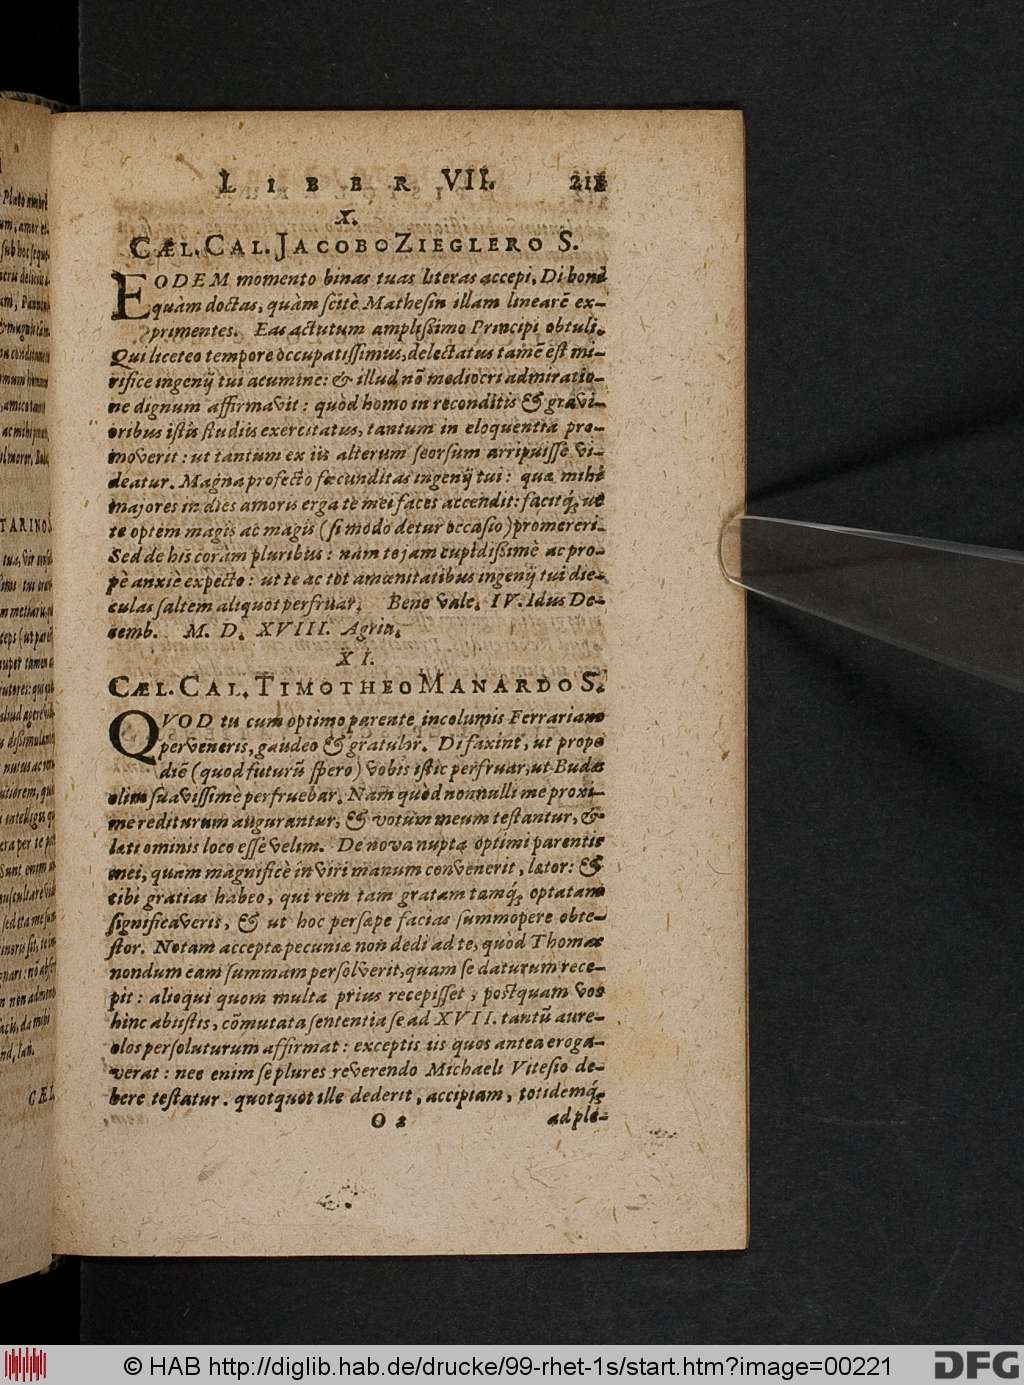 LIBER VII. 211
X.
CÆL. CAL. JACOBO ZIEGLERO S.
EODEM momento binas tuas literas accepi, Di boni
quàm doctas, quàm scitè Mathesin illam linearē ex-
primentes. Eas actutum amplissimo Principi obtuli.
Qui licet eo tempore occupatissimus, delectatus tamē est mi-
rifice ingenij tui acumine: & illud nō mediocri admiratio-
ne dignum affirmavit: quòd homo in reconditis & gravi-
oribus istis studiis exercitatus, tantum in eloquentia pro-
moverit: ut tantum ex iis alterum seorsum arripuisse vi-
deatur. Magna profectò fœcunditas ingenij tui: quæ mihi
majores in dies amoris erga te mei faces accendit: facitq́; ut
te optem magis ac magis (si modo detur occasio) promereri.
Sed de his coràm pluribus: nam te jam cupidissimè ac pro-
pè anxiè expecto: ut te ac tot amœnitatibus ingenij tui die-
culas saltem aliquot perfruar. Bene vale. IV. Idus De-
cemb. M. D. XVIII. Agriæ.
XI.
CÆL. CAL. TIMOTHEO MANARDO S.
QVOD tu cum optimo parente incolumis Ferrariam
perveneris, gaudeo & gratulor. Di faxint, ut prope
diē (quod futurū spero) vobis istic perfruar, ut Budæ
olim suavissimè perfruebar. Nam quòd nonnulli me proxi-
me rediturum augurantur, & votum meum testantur, &
læti ominis loco esse velim. De nova nupta optimi parentis
mei, quam magnificè in viri manum convenerit, lætor: &
tibi gratias habeo, qui rem tam gratam tamq́; optatam
significaveris, & ut hoc persæpe facias summopere obte-
stor. Notam acceptæ pecuniæ non dedi ad te, quòd Thomas
nondum eam summam persolverit, quam se daturum rece-
pit: alioqui quom multa prius recepisset, postquam vos
hinc abiistis, cōmutata sententia se ad XVII. tantū aure-
olos persoluturum affirmat: exceptis iis quos antea eroga-
verat: nec enim se plures reverendo Michaeli Vitesio de-
bere testatur. quotquot ille dederit, accipiam, totidemq́;
O 2 ad ple-
TARINO S.
CÆL
© HAB http://diglib.hab.de/drucke/99-rhet-1s/start.htm?image=00221
DFG